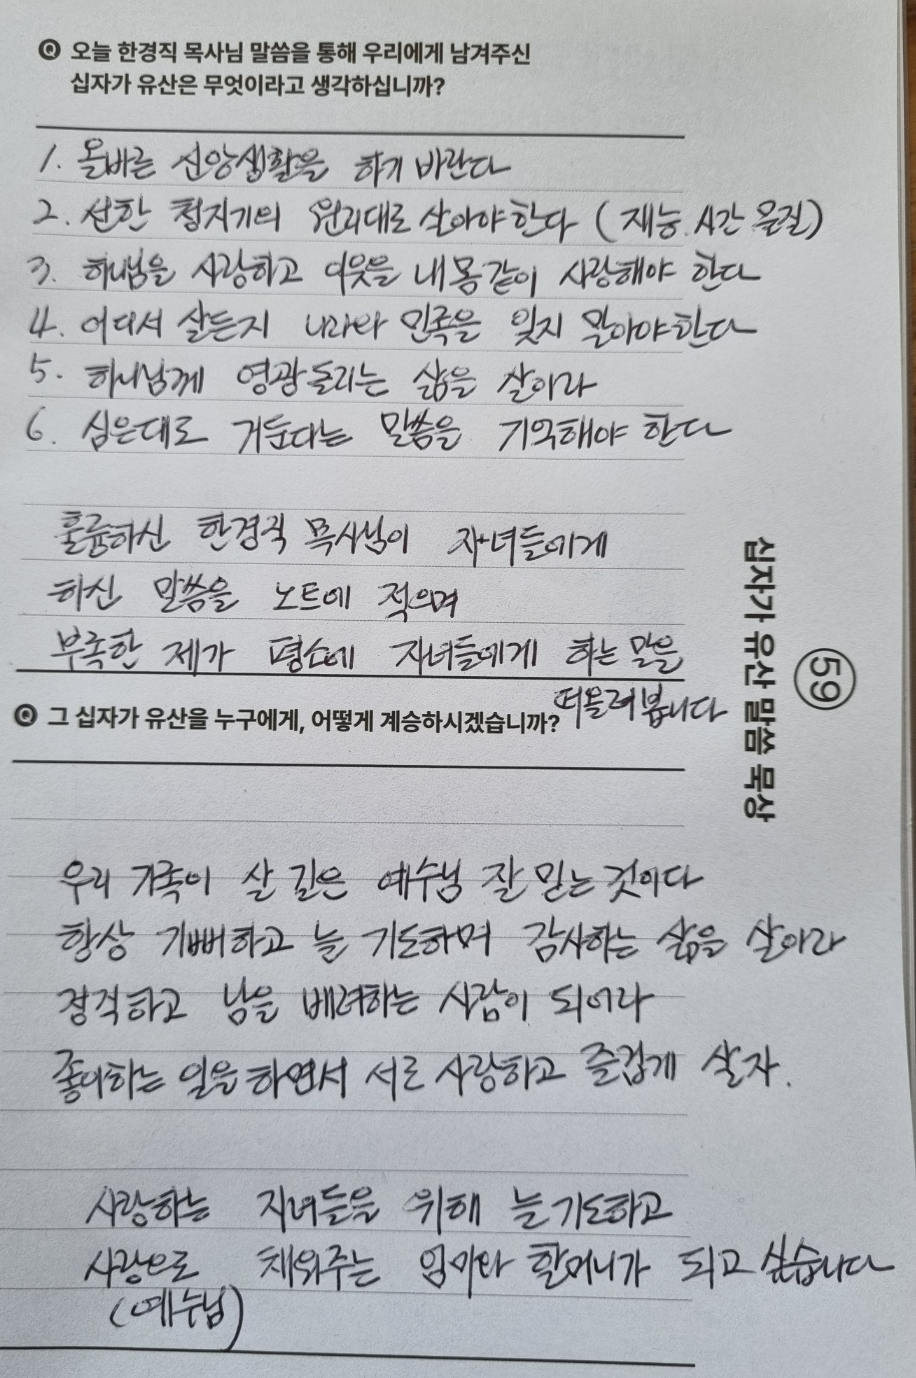 Q 오늘 한경직 목사님 말씀을 통해 우리에게 남겨주신
십자가 유산은 무엇이라고 생각하십니까?
1. 올바른 신앙생활을 하기 바란다
2. 선한 청지기의 원리대로 살아야한다 (재능.시간 물질)
3. 하나님을 사랑하고 이웃을 내몸같이 사랑해야 한다
4. 어디서 살든지 나라와 민족을 잊지 말아야한다
5. 하나님께 영광돌리는 삶을 살아라
6. 심은대로 거둔다는 말씀을 기억해야 한다
훌륭하신 한경직 목사님이 자녀들에게
하신 말씀을 노트에 적으며
부족한 제가 평소에 자녀들에게 하는 말을
떠올려봅니다
Q 그 십자가 유산을 누구에게, 어떻게 계승하시겠습니까?
우리 가족이 살 길은 예수님 잘 믿는 것이다
항상 기뻐하고 늘 기도하며 감사하는 삶을 살아라
정직하고 남을 배려하는 사람이 되어라
좋아하는 일을 하면서 서로 사랑하고 즐겁게 살자.
사랑하는 자녀들을 위해 늘 기도하고
사랑으로 채워주는 엄마와 할머니가 되고 싶습니다
(예수님)
십자가 유산 말씀 묵상
59